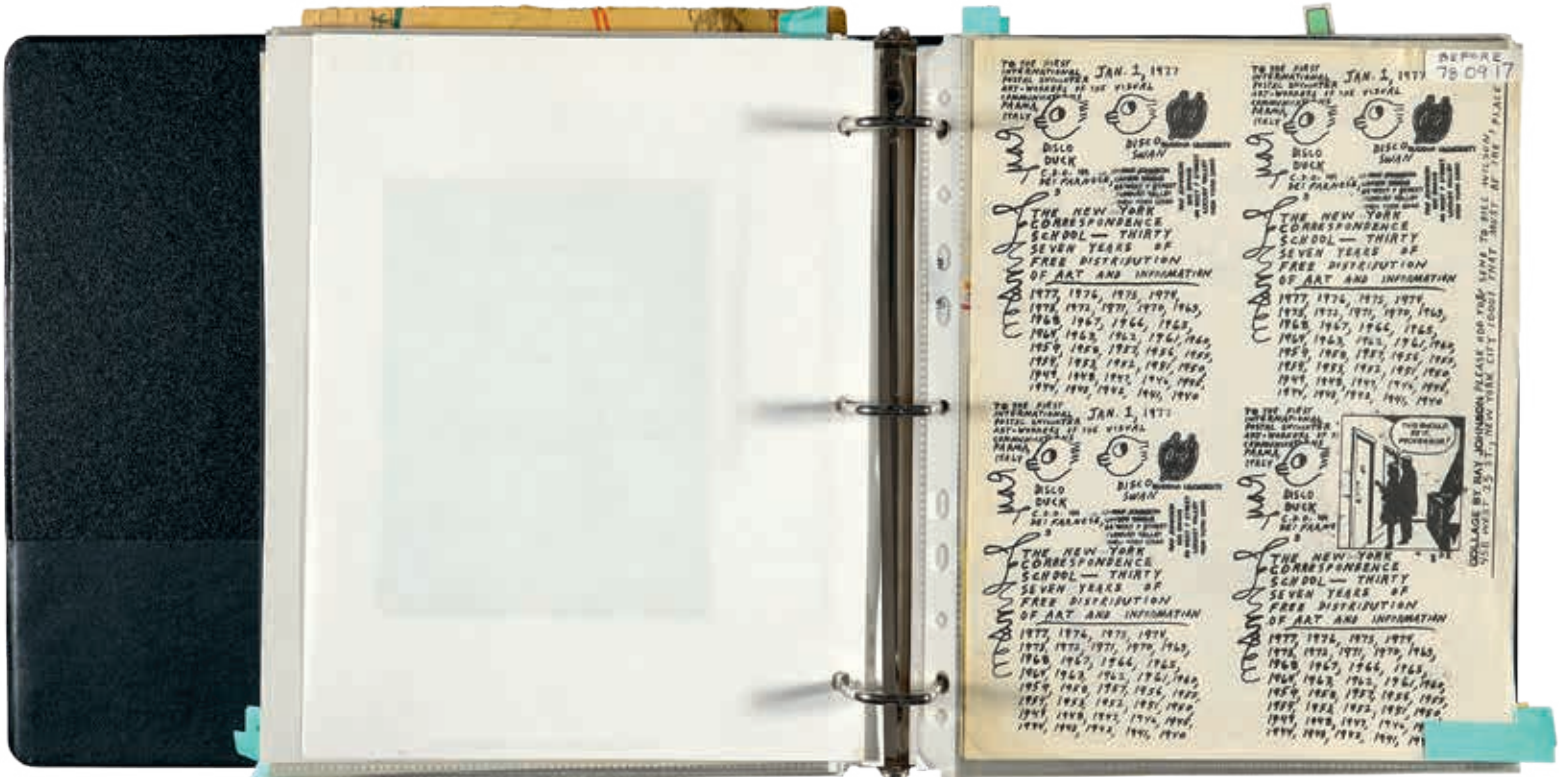 BEFORE
78 09 17
TO THE FIRST
INTERNATIONAL
POSTAL ENCOUNTER
ART-WORKERS OF THE VISUAL
COMMUNICATIONS
PARMA
ITALY
JAN. 1, 1977
DISCO
DUCK
DISCO
SWAN
BUDDHA UNIVERSITY
C.D.O.
DEI FARNESE,
3
RAY JOHNSON
44 WEST 7 STREET
LOCUST VALLEY
NEW YORK 11560
Ray
Johnson
THE NEW YORK
CORRESPONDENCE
SCHOOL — THIRTY
SEVEN YEARS OF
FREE DISTRIBUTION
OF ART AND INFORMATION
1977, 1976, 1975, 1974,
1973, 1972, 1971, 1970, 1969,
1968, 1967, 1966, 1965,
1964, 1963, 1962, 1961, 1960,
1959, 1958, 1957, 1956, 1955,
1954, 1953, 1952, 1951, 1950,
1949, 1948, 1947, 1946, 1945,
1944, 1943, 1942, 1941, 1940
TO THE FIRST
INTERNATIONAL
POSTAL ENCOUNTER
ART-WORKERS OF THE VISUAL
COMMUNICATIONS
PARMA
ITALY
JAN. 1, 1977
DISCO
DUCK
DISCO
SWAN
BUDDHA UNIVERSITY
C.D.O.
DEI FARNESE,
3
Ray
Johnson
THE NEW YORK
CORRESPONDENCE
SCHOOL — THIRTY
SEVEN YEARS OF
FREE DISTRIBUTION
OF ART AND INFORMATION
1977, 1976, 1975, 1974,
1973, 1972, 1971, 1970, 1969,
1968, 1967, 1966, 1965,
1964, 1963, 1962, 1961, 1960,
1959, 1958, 1957, 1956, 1955,
1954, 1953, 1952, 1951, 1950,
1949, 1948, 1947, 1946, 1945,
1944, 1943, 1942, 1941, 1940
TO THE FIRST
INTERNATIONAL
POSTAL ENCOUNTER
ART-WORKERS OF THE VISUAL
COMMUNICATIONS
PARMA
ITALY
JAN. 1, 1977
DISCO
DUCK
DISCO
SWAN
BUDDHA UNIVERSITY
C.D.O.
DEI FARNESE,
3
Ray
Johnson
THE NEW YORK
CORRESPONDENCE
SCHOOL — THIRTY
SEVEN YEARS OF
FREE DISTRIBUTION
OF ART AND INFORMATION
1977, 1976, 1975, 1974,
1973, 1972, 1971, 1970, 1969,
1968, 1967, 1966, 1965,
1964, 1963, 1962, 1961, 1960,
1959, 1958, 1957, 1956, 1955,
1954, 1953, 1952, 1951, 1950,
1949, 1948, 1947, 1946, 1945,
1944, 1943, 1942, 1941, 1940
TO THE FIRST
INTERNATIONAL
POSTAL ENCOUNTER
ART-WORKERS OF
COMMUNICATIONS
PARMA
ITALY
DISCO
DUCK
C.D.O.
DEI FARNE
3
THIS SHOULD
BE IT,
PROFESSOR!
Ray
Johnson
THE NEW YORK
CORRESPONDENCE
SCHOOL — THIRTY
SEVEN YEARS OF
FREE DISTRIBUTION
OF ART AND INFORMATION
1977, 1976, 1975, 1974,
1973, 1972, 1971, 1970, 1969,
1968, 1967, 1966, 1965,
1964, 1963, 1962, 1961, 1960,
1959, 1958, 1957, 1956, 1955,
1954, 1953, 1952, 1951, 1950
1949, 1948, 1947, 1946,
1944, 1943, 1942, 1941,
COLLAGE BY RAY JOHNSON PLEASE ADD TO & SEND TO BILL WILSON,
458 WEST 25 ST., NEW YORK CITY 10001 THAT MUST BE THE PLACE